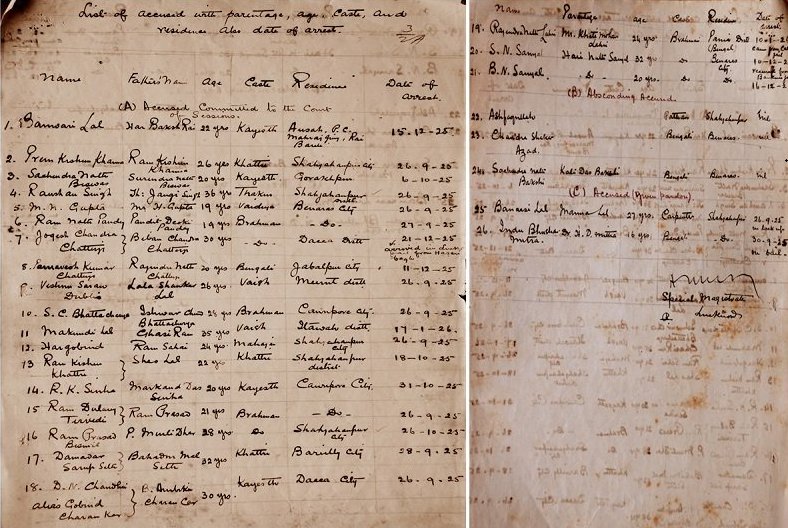 List of accused with parentage, age, caste, and
residence also date of arrest.
Name Father's Name Age Caste Residence Date of
arrest.
(A) Accused Committed to the Court
of Sessions.
1. Banwari Lal Har Barosh Rai 22 yrs Kayesth P.C. 15-12-25
Rai
2. Prem Kishen Khanna Ram Kishen 26 yrs Khattri Shahjahanpur City 26-9-25
Khanna
3. Sachindra Nath Surendra Nath 20 yrs Kayesth Gorakhpur 6-10-25
Biswas Biswas
4. Raushan Singh Th: Jangi Singh 36 yrs Thakur Shahjahanpur 26-9-25
5. M. N. Gupta Mr H. Gupta 19 yrs Vaidya Benares 26-9-25
City
6. Ram Nath Pandey Pandit 19 yrs Brahman - Do - 27-9-25
Pandey
7. Jogesh Chandra 30 yrs - Do - Dacca Distt 21-12-25
Chatterji Chatterji
8. Kumar Rajendra Nath 20 yrs Bengali Jabalpur City 11-12-25
Chatterji
9. Vishnu Saran Lala Shankar 26 yrs. Vaish Meerut distt 26.9.25
Dublis Lal
10. S.C. Bhattacharya 28 yrs Brahman Cawnpore City. 26-9-25
Bhattacharya
11 Makundi Lal Ghasi Ram 25 yrs Vaish Etawah distt 17-1-26.
12. Hargobind Ram Sahai 24 yrs. Shahjahanpur 26-9-25
City
13 Ram Kishen Lal 22 yrs Khattri Shahjahanpur 18-10-25
Khattri district
14. R.K. Sinha Markand Das 20 yrs Kayesth Cawnpore City. 31-10-25
Sinha
15 Ram Dularey Ram Prasad 21 yrs Brahman - Do - 26-9-25
Tervedi
16 Ram Prasad P. Murli Dhar 28 yrs Do Shahjahanpur 26-10-25
Bismil City
17. Damadar Bahadur Mal 32 yrs Khattri Bareilly City 28-9-25
Sarup Seth Seth
18. D.N. Chaudhri B. Ambika 30 yrs. Kayesth Dacca City 26-9-25
alias Gobind Charan Car
Charan Kar
Name Parentage age Caste Residence Date of
arrest
19. Rajendra Nath Lahiri Mr. Khiti Mohan 24 yrs Brahman
Lahiri (Bengal)
20. S. N. Sanyal Hari Nath Sanyal 32 yrs Do Benares
City
21. B. N. Sanyal - Do - 20 yrs. Do Do
(B) Absconding Accused
22. Ashfaqullah Pathan Shahjahanpur Nil
23. Chandra Sheker Bengali Benares. Nil
Azad.
24. Sachindra Nath Kali Das Bakshi Bengali Benares. Nil
Bakshi
(C) Accused (Given pardon)
25 Banarsi Lal Lal 27 yrs. Carpenter Shahjahanpur 26.9.25
26. Indu Bhushan H. D. Mitra 16 yrs Bengali - Do - 30-9-25
Mitra. on bail.
Special Magistrate
Lucknow